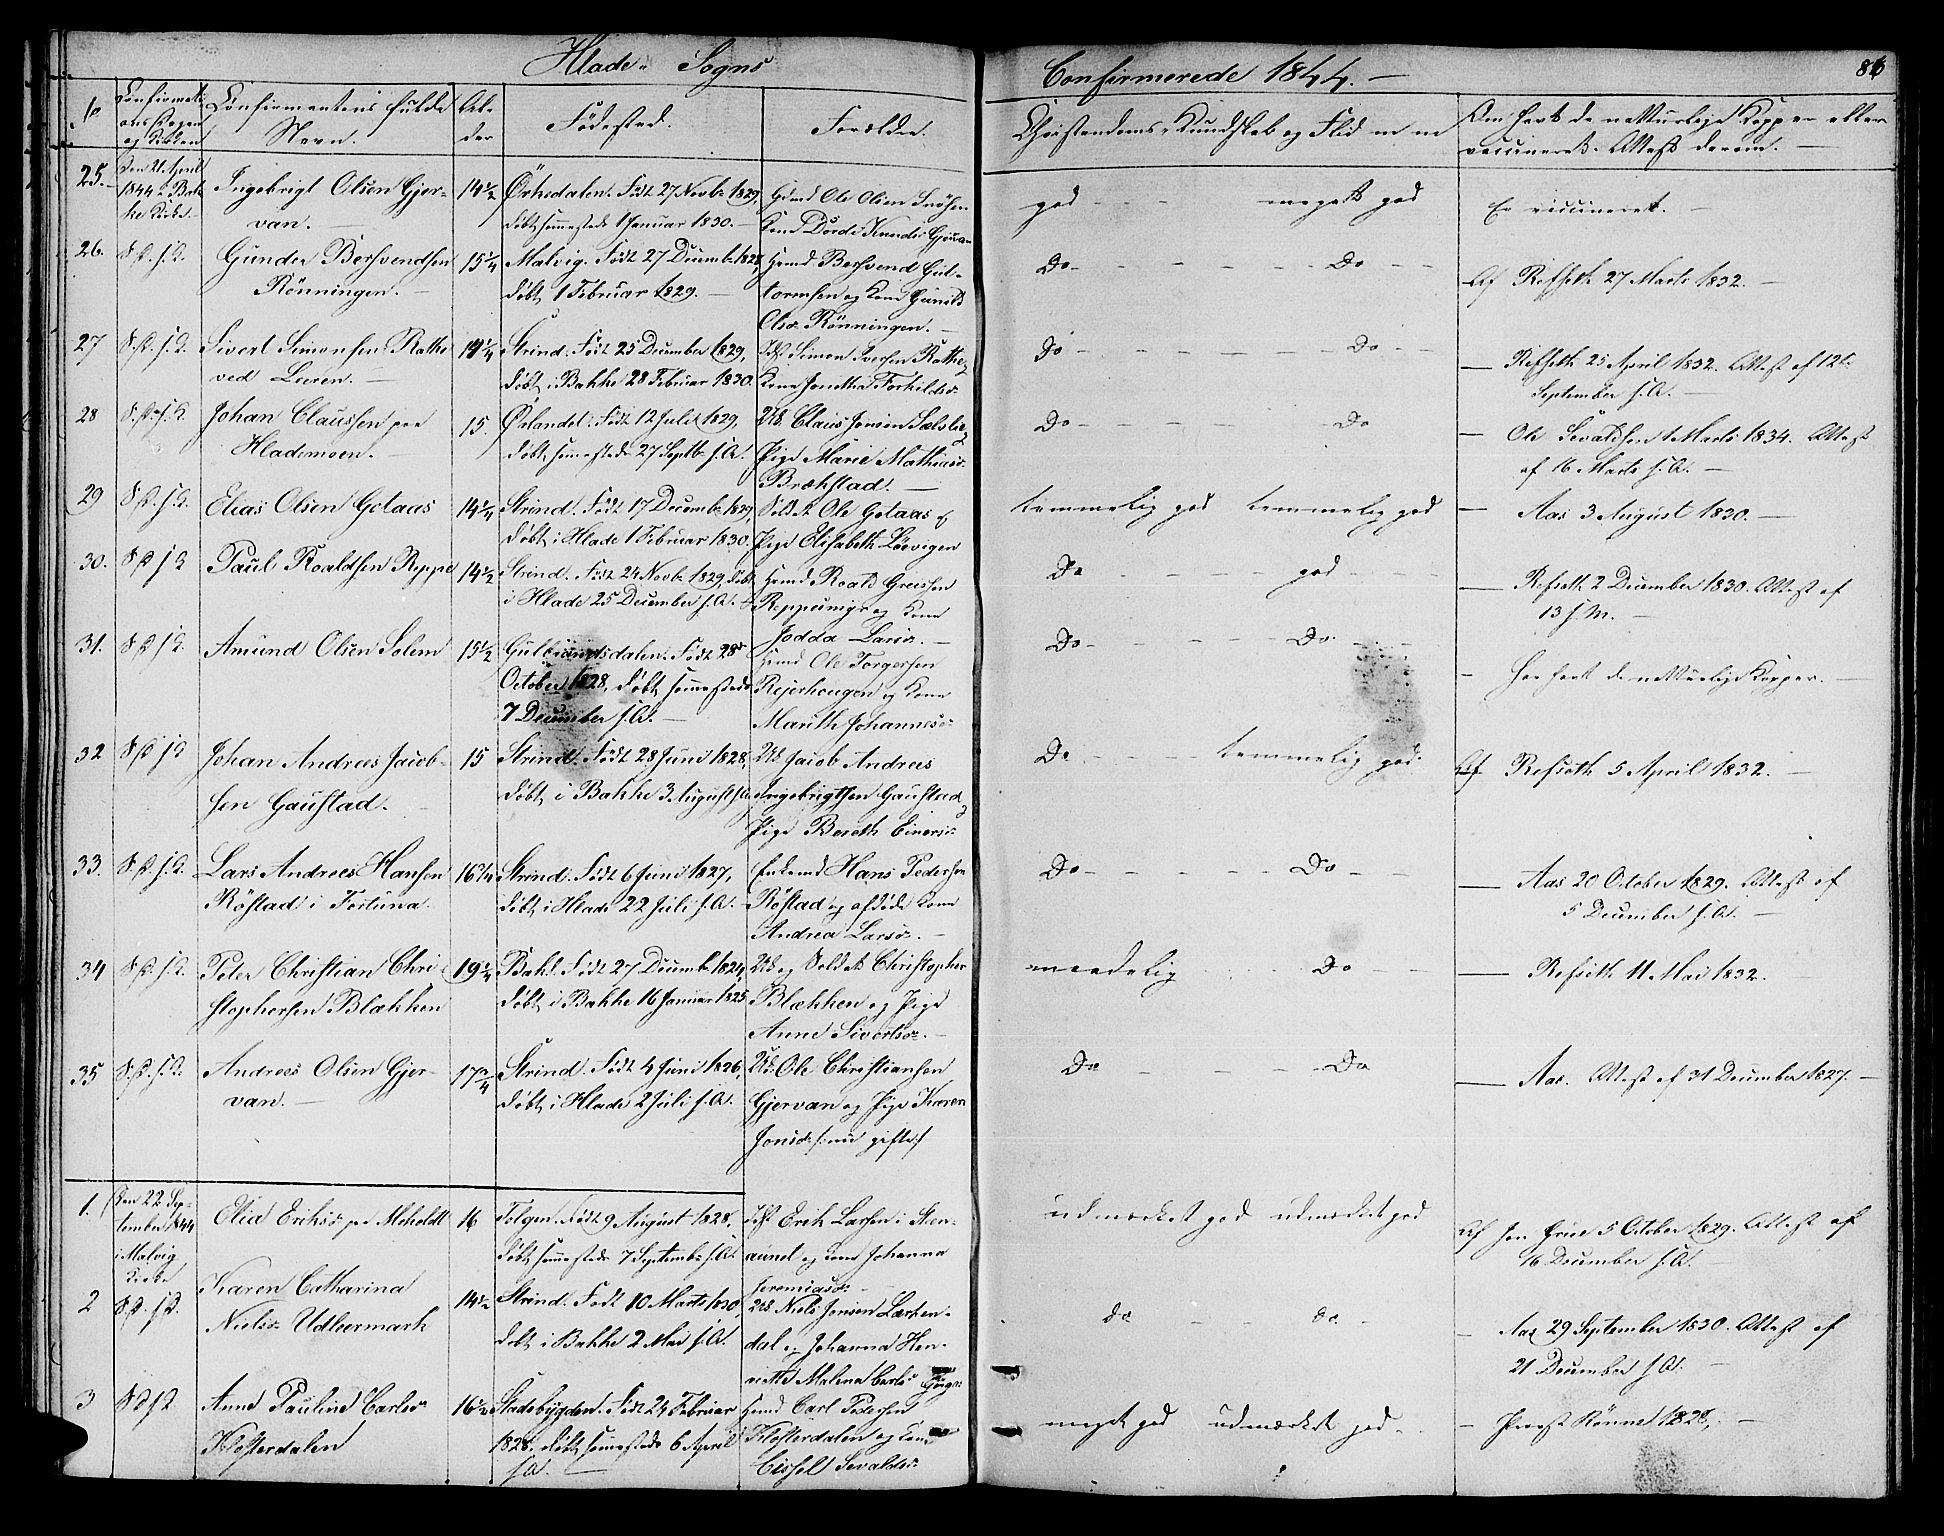 Hlade Sogns
Confirmerede 1844.
86
Confirmat-
ions Dagen
og Kirken
Confirmantens fulde
Navn.
Al-
der
Födested.
Forældre.
Christendoms-Kundskab og Flid m m
Om havt de naturlige Kopper eller
vaccineret. Attest derom.
25.
Den 21 April
1844 i Bak
ke Kirke
Ingebrigt Olsen Gjer-
van.
14 1/2
Örkedalen. Födt 27 Novbr 1829,
döbt sammesteds 1 Januar 1830.
Huusmd Ole Olsen
god
meget god
Er vaccineret.
26.
S. D. s. K.
Gunder Bersvendsen
Rönningen.
15 1/4
Malvig. Födt 27 Decemb. 1828,
döbt 1 Februar 1829.
Huusmd Bersvend Gut-
tormsen og Kone Gunild
Olsdr Rönningen.
Do
Do
Af Refseth 27 Marts 1832.
27
S. D. s. K.
Sivert Simonsen Rathe
ved Leeren.
14 1/4
Strind. Födt 25 December 1829,
döbt i Bakke 28 Februar 1830.
Simon Iversen Rathe og
Kone Jonetha Torkildsdr
Do
Do
Refseth 25 April 1832. Attest af 12te
September s. A.
28
S. D. s. K.
Johan Claussen paa
Hlademoen.
15.
Örlandet. Födt 12 Juli 1829,
döbt sammesteds 27 Septbr s. A.
Claus Jonsen
Pige Marie Mathiasdr
Brækstad.
Do
Do
Ole Sevaldsen 1 Marts 1834. Attest
af 16 Marts s. A.
29
S. D. s. K.
Elias Olsen Gotaas
14 1/4
Strind. Födt 17 Decembr 1829,
döbt i Hlade 1 Februar 1830.
Soldat Ole Gotaas og
Pige Elisabeth Löevigen
temmelig god
temmelig god
Aas 3 August 1830.
30.
S D s K
Paul Roaldsen Reppe
14 1/2
Strind. Födt 24 Novbr 1829, döbt
i Hlade 25 December s. A.
Huusmd Roald
og Kone
Jodda Larsdr.
Do
god
Refseth 2 December 1830. Attest af
13 s. M.
31.
S D s K.
Amund Olsen Solem
15 1/2
Födt 28
October 1828, döbt sammesteds
7 December s. A.
Huusmd Ole Torgersen
Rejerhougen og Kone
Marith Johannesdr
Do
Do
Har havt de naturlige Kopper.
32
S D s K
Johan Andreas Jacob-
sen Gaustad.
15
Strind. Födt 28 Juni 1828,
döbt i Bakke 3 August s. A.
Jacob Andreas
Ingebrigtsen Gaustad og
Pige Bereth Einersdr
Do
temmelig god.
Af Refseth 5 April 1832.
33.
S. D. s. K.
Lars Andreas Hansen
Röstad i Fortuna.
16 3/4
Strind. Födt 6 Juni 1827,
döbt i Hlade 22 Juli s. A.
Enkemd Hans Pedersen
Röstad og afdöde Kone
Andrea Larsdr.
Do
Do
Aas 20 October 1829. Attest af
5 December s. A.
34
S. D. s. K.
Peter Christian Chri-
stophersen Blækken
19 1/4
Bakl. Födt 27 Decemb. 1824,
döbt i Bakke 16 Januar 1825
og Soldat Christopher
Blækken og Pige
Anne Sivertsdr.
maadelig
Do
Refseth 11 Mai 1832.
35
S. D. s. K.
Andreas Olsen Gjer-
van.
17 3/4
Strind. Födt 4 Juni 1826,
döbt i Hlade 2 Juli s. A.
Ole Christiansen
Gjervan og Pige Karen
Jonsdr /: nu gifte :/
Do
Do
Aas. Attest af 31 December 1827.
1.
Den 22 Sep-
tember 1844
i Malvig
Kirke
Elia Eriksdr paa Moholdt
16
Tolgen. Födt 9 August 1828,
döbt sammesteds 7 Septembr s. A.
Erik Larsen i Sten-
aunet og Kone Johanna
Jeremiasdr
udmærket god
udmærket god
Af Jon Grue 5 October 1829. Attest af
16 December s. A.
2
S. D. s. K.
Karen Catharina
Nielsdr Udleermark
14 1/2
Strind. Födt 10 Marts 1830,
döbt i Bakke 2 Mai s. A.
Niels Jonsen Lerken-
dal og Johanna Hen-
riette Malena
do
do
Aas 29 September 1830. Attest af
21 December s. A.
3
S D s K
Anne Pauline Carlsdr
Klosterdalen
16 1/2
Stadsbygden. Födt 24 Februar
1828, döbt sammesteds 6 April
s. A.
Huusmd Carl Pedersen
Klosterdalen og Kone
Cissel Sevaldsdr
meget god
udmærket god
Provst Rönne 1828,